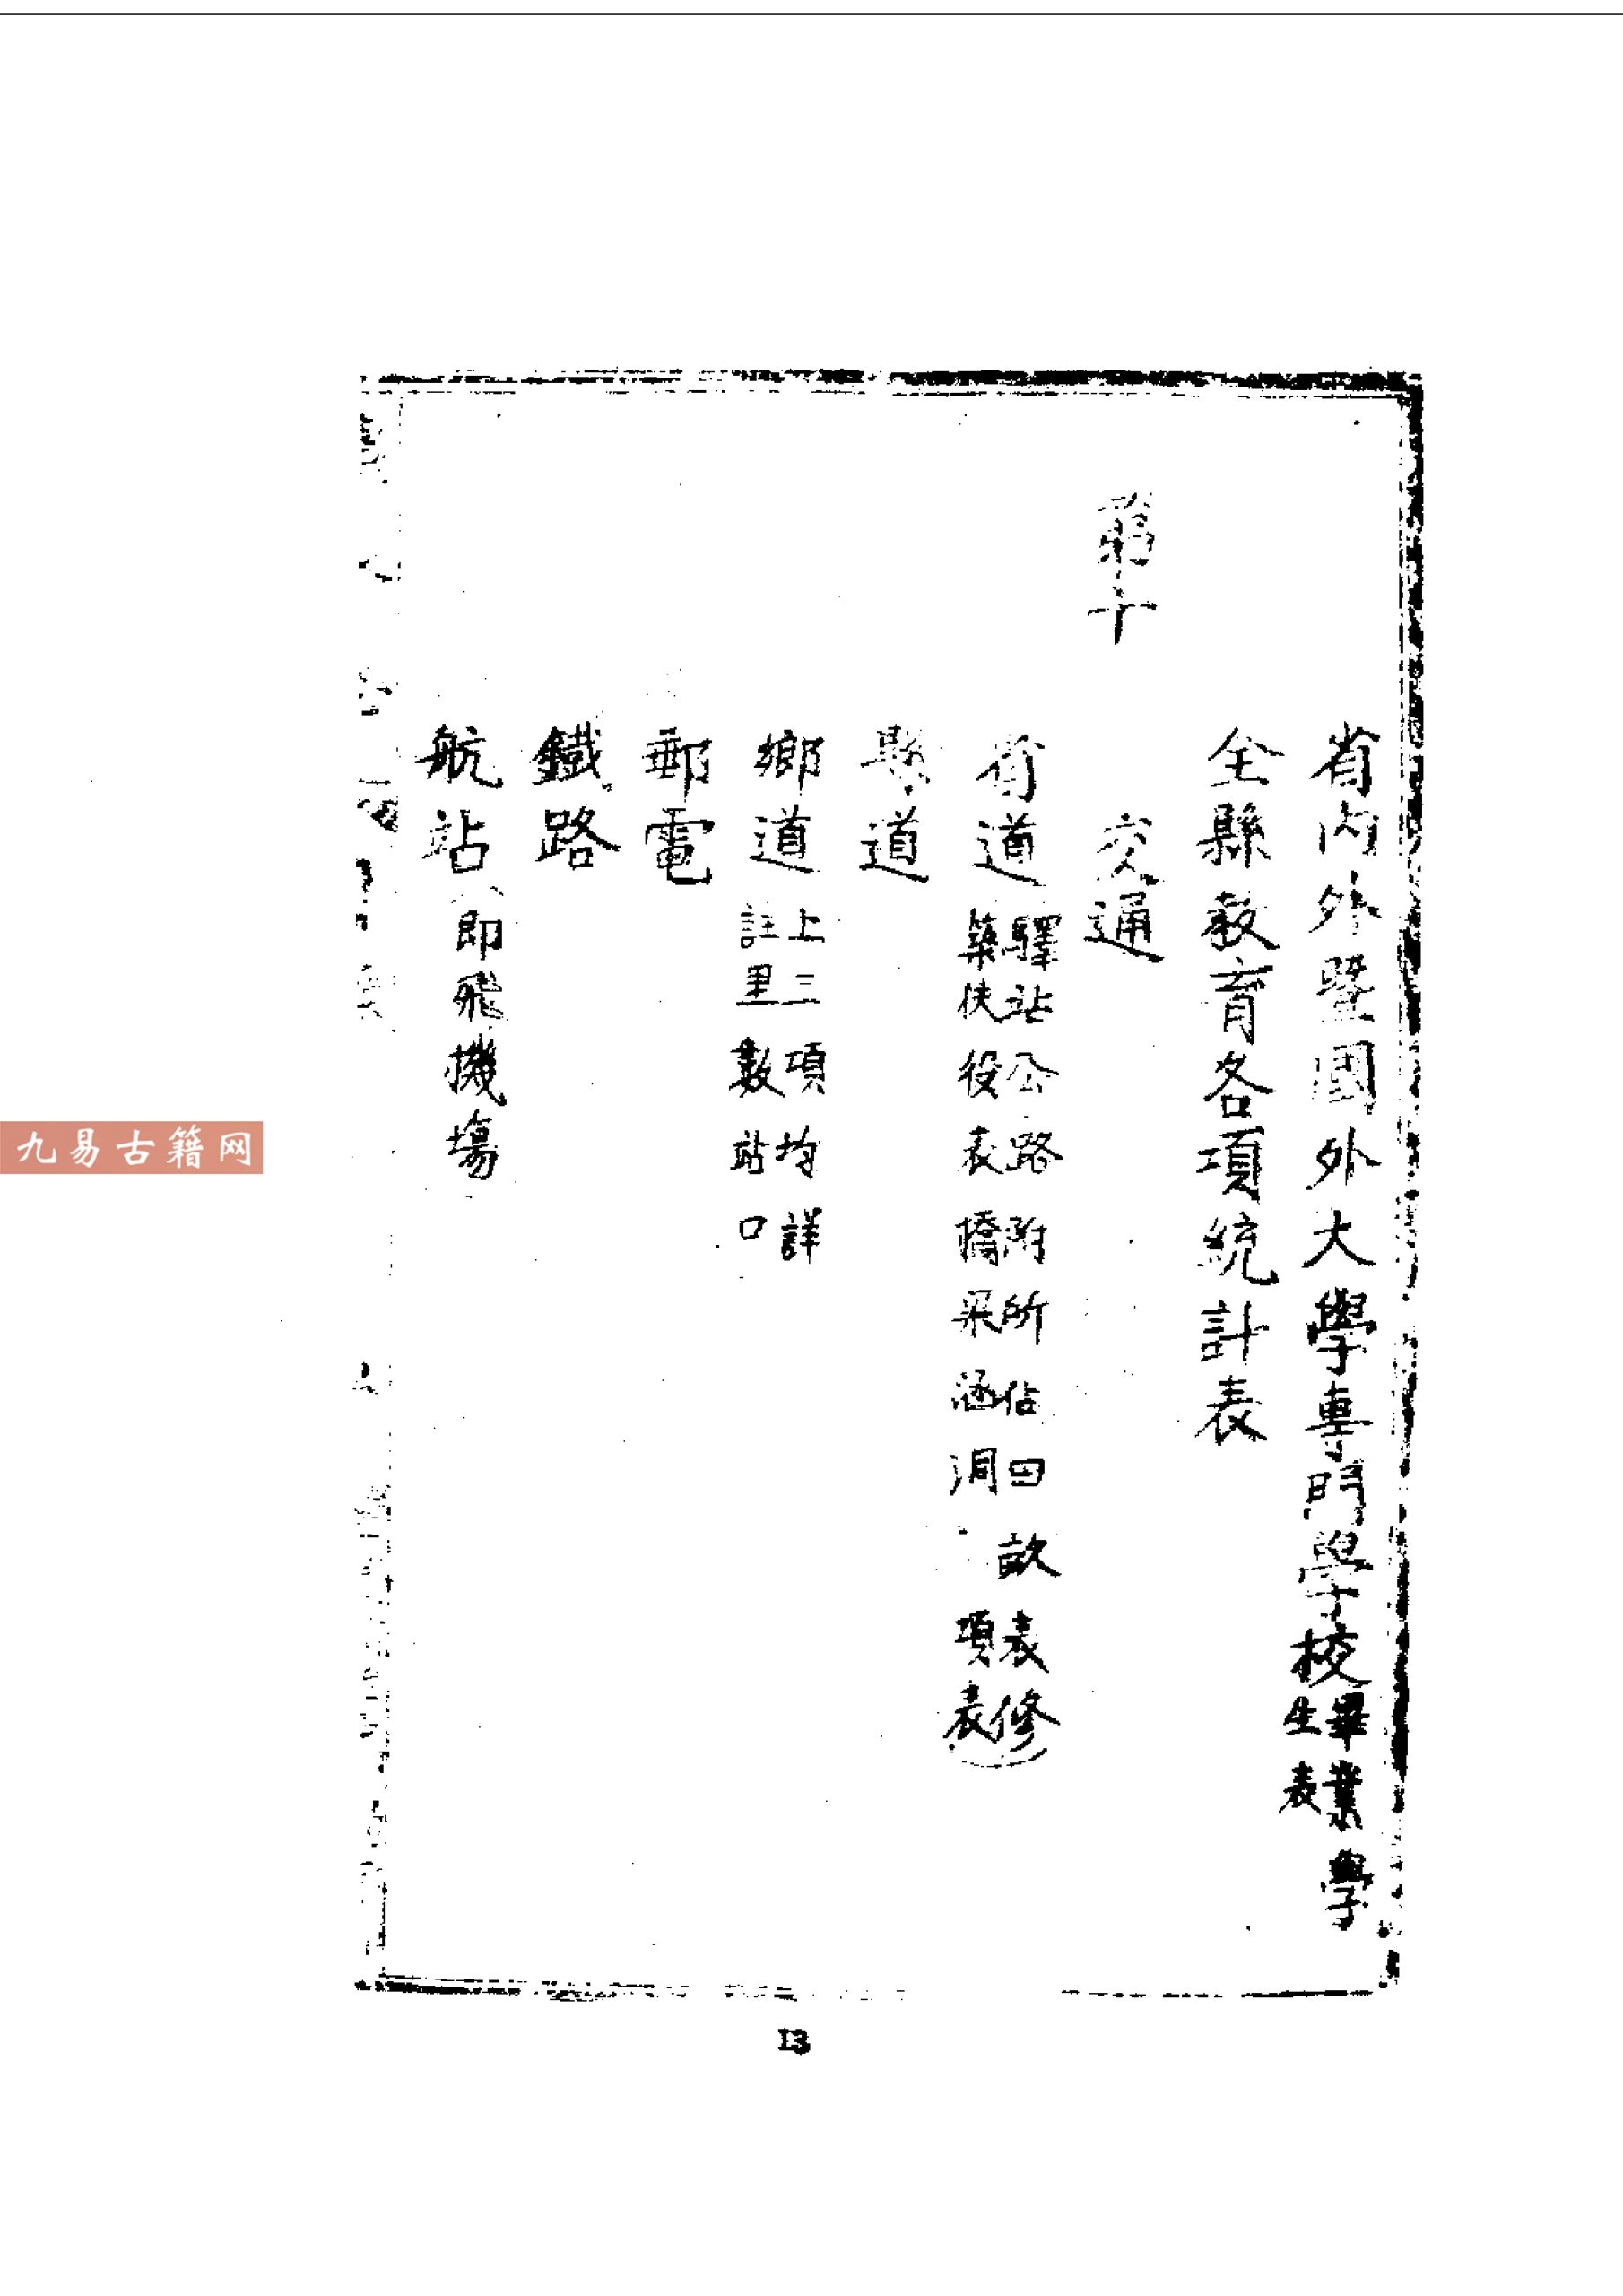 省內外暨國外大學專門學校畢業學生表
全縣教育各項統計表
第十
交通
省道驛站公路附所佔田畝表修築伕役表橋梁涵洞項表
縣道
鄉道上三項均詳註里數站口
郵電
鐵路
航站即飛機場
13
九易古籍网